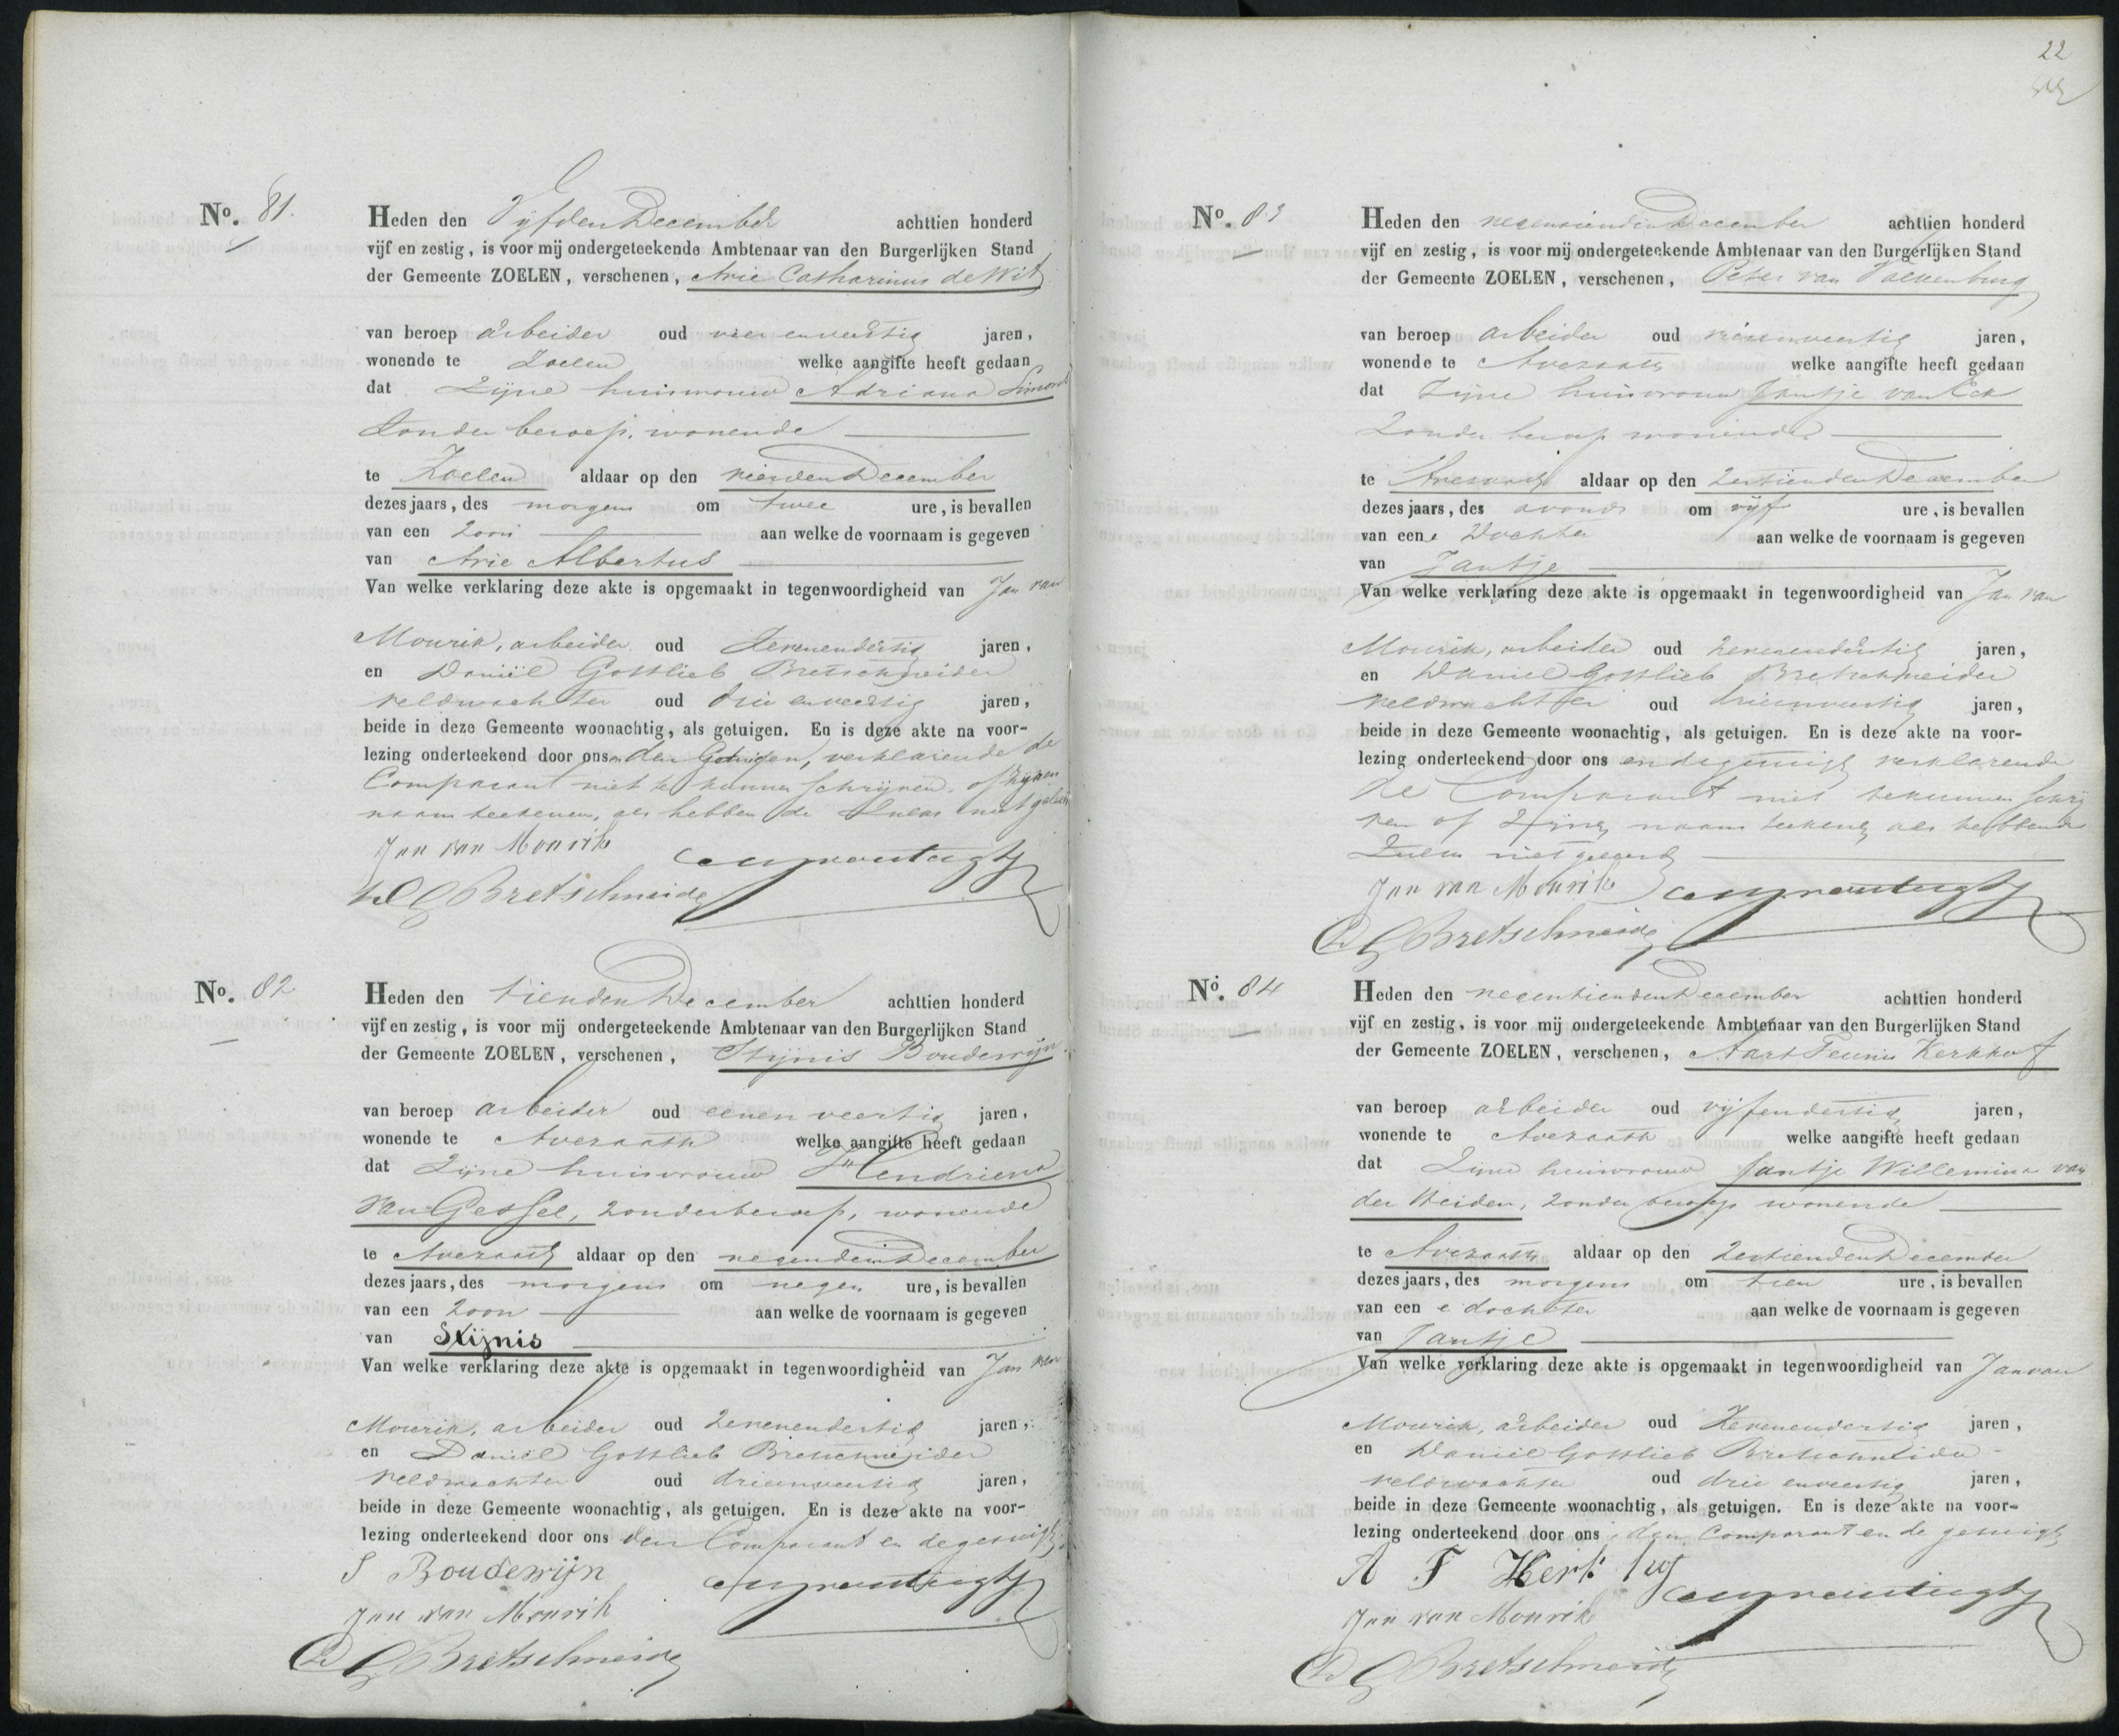 No. 81.
Heden den Vijfden December achttien honderd
vijf en zestig, is voor mij ondergeteekende Ambtenaar van den Burgerlijken Stand
der Gemeente ZOELEN, verschenen, Arie Catharinus de Wit
van beroep arbeider oud vier en veertig jaren,
wonende te Zoelen welke aangifte heeft gedaan
dat Zijne huisvrouw Adriana Simons
Zonder beroep, wonende
te Zoelen aldaar op den vierden December
dezes jaars, des morgens om twee ure, is bevallen
van een zoon aan welke de voornaam is gegeven
van Arie Albertus
Van welke verklaring deze akte is opgemaakt in tegenwoordigheid van Jan van
Mourik, arbeider oud Zevenendertig jaren,
en Daniël Gottlieb Bretschneider
veldwachter oud drie en veertig jaren,
beide in deze Gemeente woonachtig, als getuigen. En is deze akte na voor-
lezing onderteekend door ons en den Getuigen, verklarende de
Comparant niet te kunnen schrijven of zijnen
naam teekenen, als hebben de Zulks niet geleerd
Jan van Mourik
D G Bretschneider
No. 82
Heden den tienden December achttien honderd
vijf en zestig, is voor mij ondergeteekende Ambtenaar van den Burgerlijken Stand
der Gemeente ZOELEN, verschenen, Stijnis Boudewijn
van beroep arbeider oud eenen veertig jaren,
wonende te Avezaath welke aangifte heeft gedaan
dat Zijne huisvrouw Hendriena
van Gessel, zonder beroep, wonende
te Avezaath aldaar op den negenden December
dezes jaars, des morgens om negen ure, is bevallen
van een zoon aan welke de voornaam is gegeven
van Stijnis
Van welke verklaring deze akte is opgemaakt in tegenwoordigheid van Jan van
Mourik, arbeider oud zevenendertig jaren,
en Daniël Gottlieb Bretschneider
veldwachter oud drieenveertig jaren,
beide in deze Gemeente woonachtig, als getuigen. En is deze akte na voor-
lezing onderteekend door ons den Comparant en de getuigen
S Boudewijn
Jan van Mourik
D G Bretschneider
22
No. 83
Heden den negentienden December achttien honderd
vijf en zestig, is voor mij ondergeteekende Ambtenaar van den Burgerlijken Stand
der Gemeente ZOELEN, verschenen, Peter van Valkenburg
van beroep arbeider oud vierenveertig jaren,
wonende te Avezaath welke aangifte heeft gedaan
dat Zijne huisvrouw Jantje van Eck
Zonder beroep wonende
te Avezaath aldaar op den zestienden December
dezes jaars, des avonds om vijf ure, is bevallen
van eene Dochter aan welke de voornaam is gegeven
van Jantje
Van welke verklaring deze akte is opgemaakt in tegenwoordigheid van Jan van
Mourik, arbeider oud zevenendertig jaren,
en Daniel Gottlieb Bretschneider
veldwachter oud drieenveertig jaren,
beide in deze Gemeente woonachtig, als getuigen. En is deze akte na voor-
lezing onderteekend door ons en de getuige verklarende
de Comparant niet te kunnen schrij
ven of Zijne naam teekenen als hebbende
Zulks niet geleerd
Jan van Mourik
D G Bretschneider
No. 84
Heden den negentienden December achttien honderd
vijf en zestig, is voor mij ondergeteekende Ambtenaar van den Burgerlijken Stand
der Gemeente ZOELEN, verschenen, Aart Teunis Kerkhof
van beroep arbeider oud vijfendertig jaren,
wonende te Avezaath welke aangifte heeft gedaan
dat Zijne huisvrouw Jantje Willemina van
der Weiden, zonder beroep wonende
te Avezaath aldaar op den zestienden December
dezes jaars, des morgens om tien ure, is bevallen
van een e dochter aan welke de voornaam is gegeven
van Jantje
Van welke verklaring deze akte is opgemaakt in tegenwoordigheid van Jan van
Mourik, arbeider oud Zevenendertig jaren,
en Daniel Gottlieb Bretschneider
veldwachter oud drie en veertig jaren,
beide in deze Gemeente woonachtig, als getuigen. En is deze akte na voor-
lezing onderteekend door ons den Comparant en de getuigen
A T Kerkhof
Jan van Mourik
D G Bretschneider